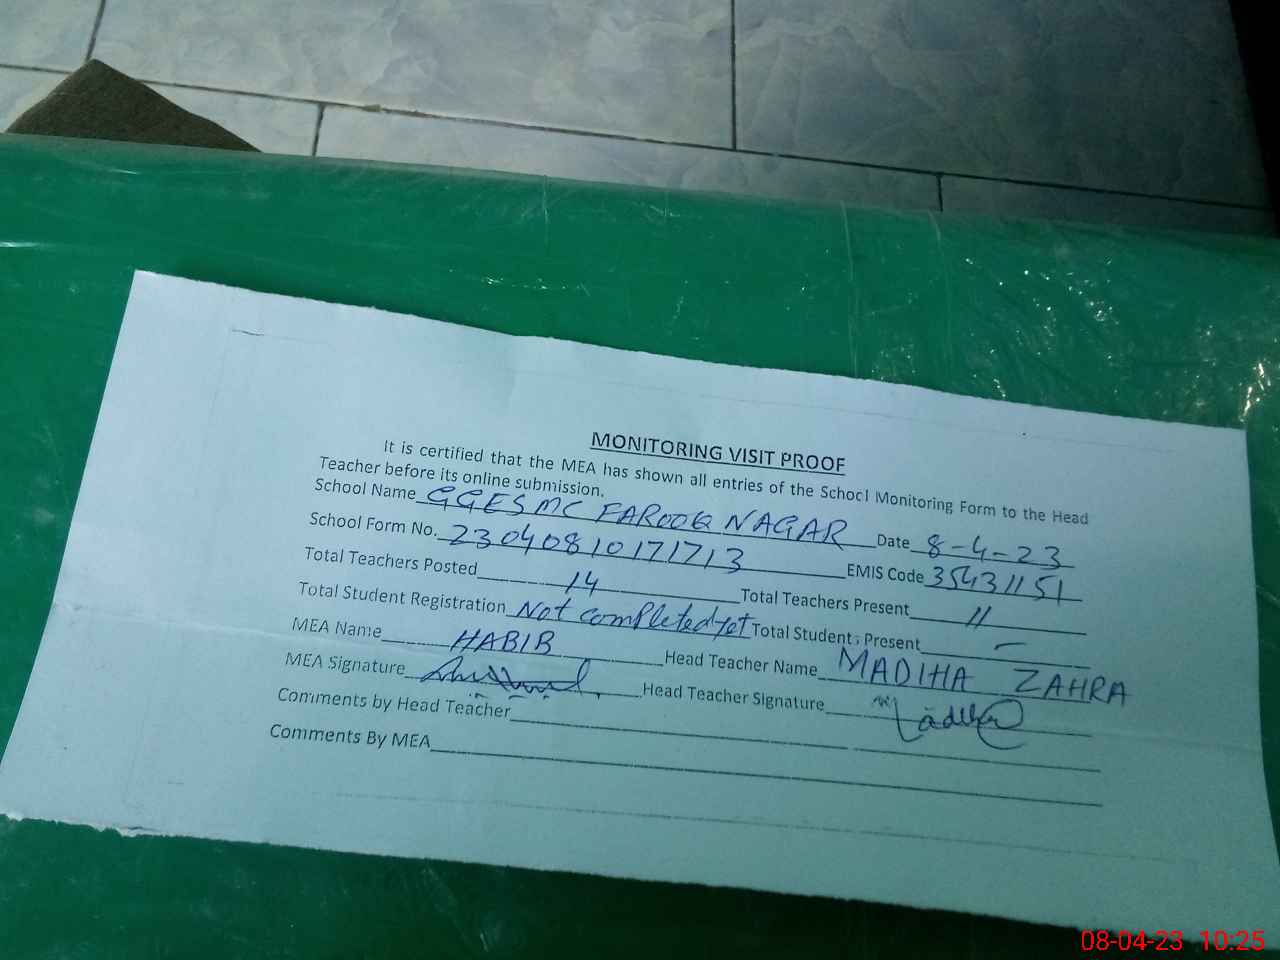 MONITORING VISIT PROOF
It is certified that the MEA has shown all entries of the School Monitoring Form to the Head
Teacher before its online submission.
School Name GGES MC FAROOQ NAGAR Date 8-4-23
School Form No. 23040810171713 EMIS Code 35431151
Total Teachers Posted 14 Total Teachers Present 11
Total Student Registration Not completed yet Total Students Present -
MEA Name HABIB Head Teacher Name MADIHA ZAHRA
MEA Signature Head Teacher Signature Madiha
Comments by Head Teacher
Comments By MEA
08-04-23 10:25